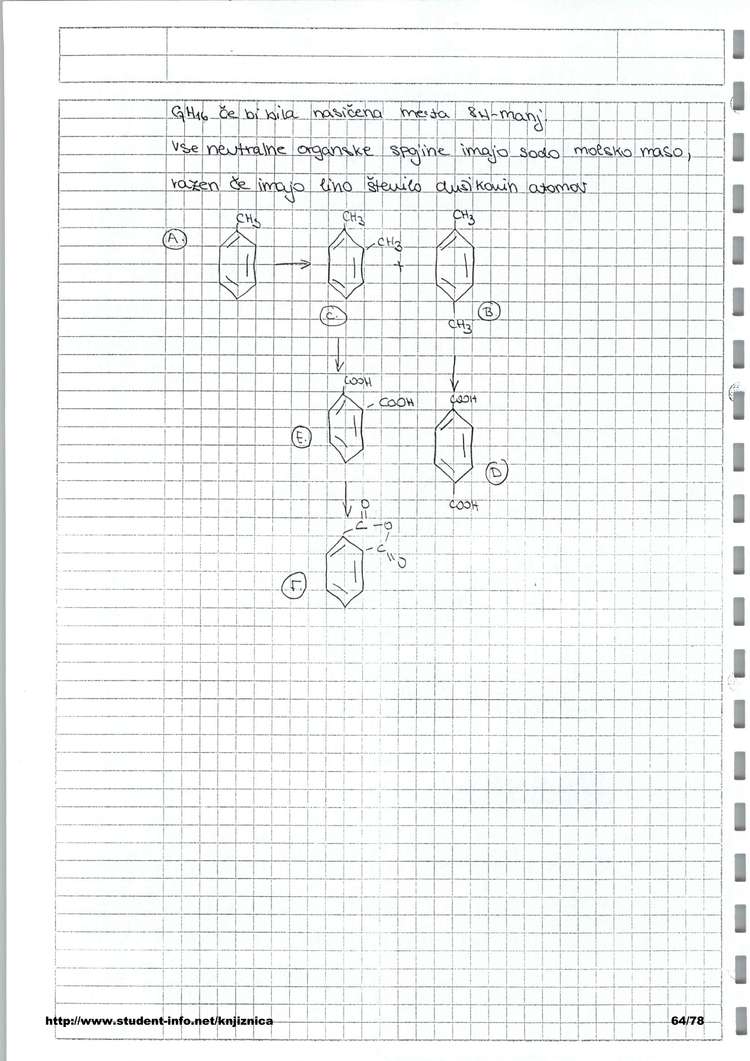 C7H16 če bi bila nasičena mesta 8H-manj.
vse neutralne organske spojine imajo sodo molsko maso,
razen če imajo liho število dušikovih atomov
A. CH3 CH3 CH3 + CH3
C. CH3 B
COOH COOH COOH
E. D
COOH
O
C-O
C O
F.
http://www.student-info.net/knjiznica 64/78